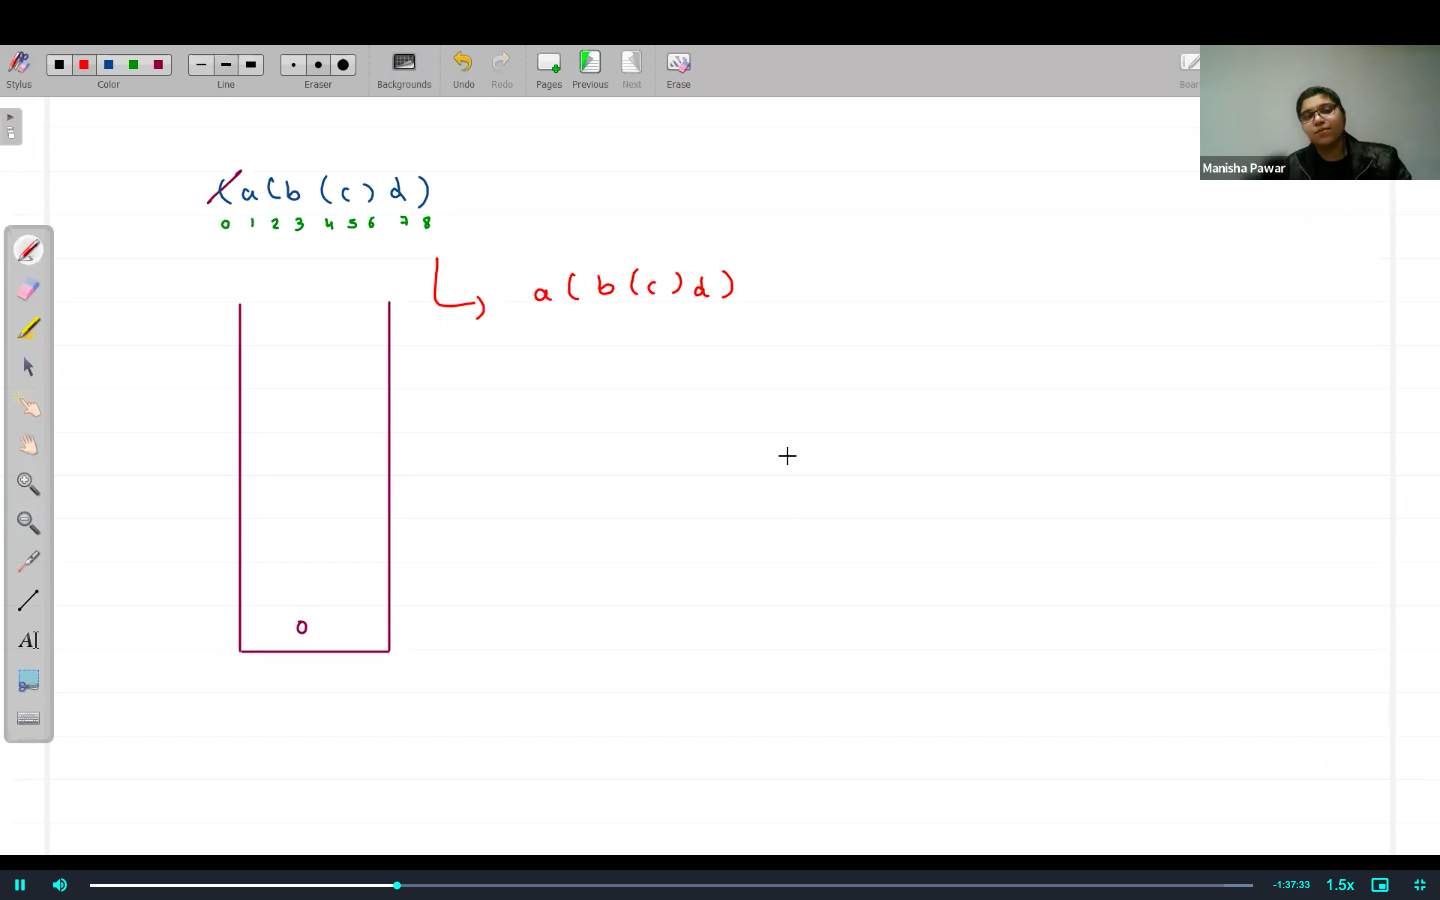 Stylus Color Line Eraser Backgrounds Undo Redo Pages Previous Next Erase
Manisha Pawar
(a(b(c)d)
0 1 2 3 4 5 6 7 8
a(b(c)d)
0
-1:37:33 1.5x